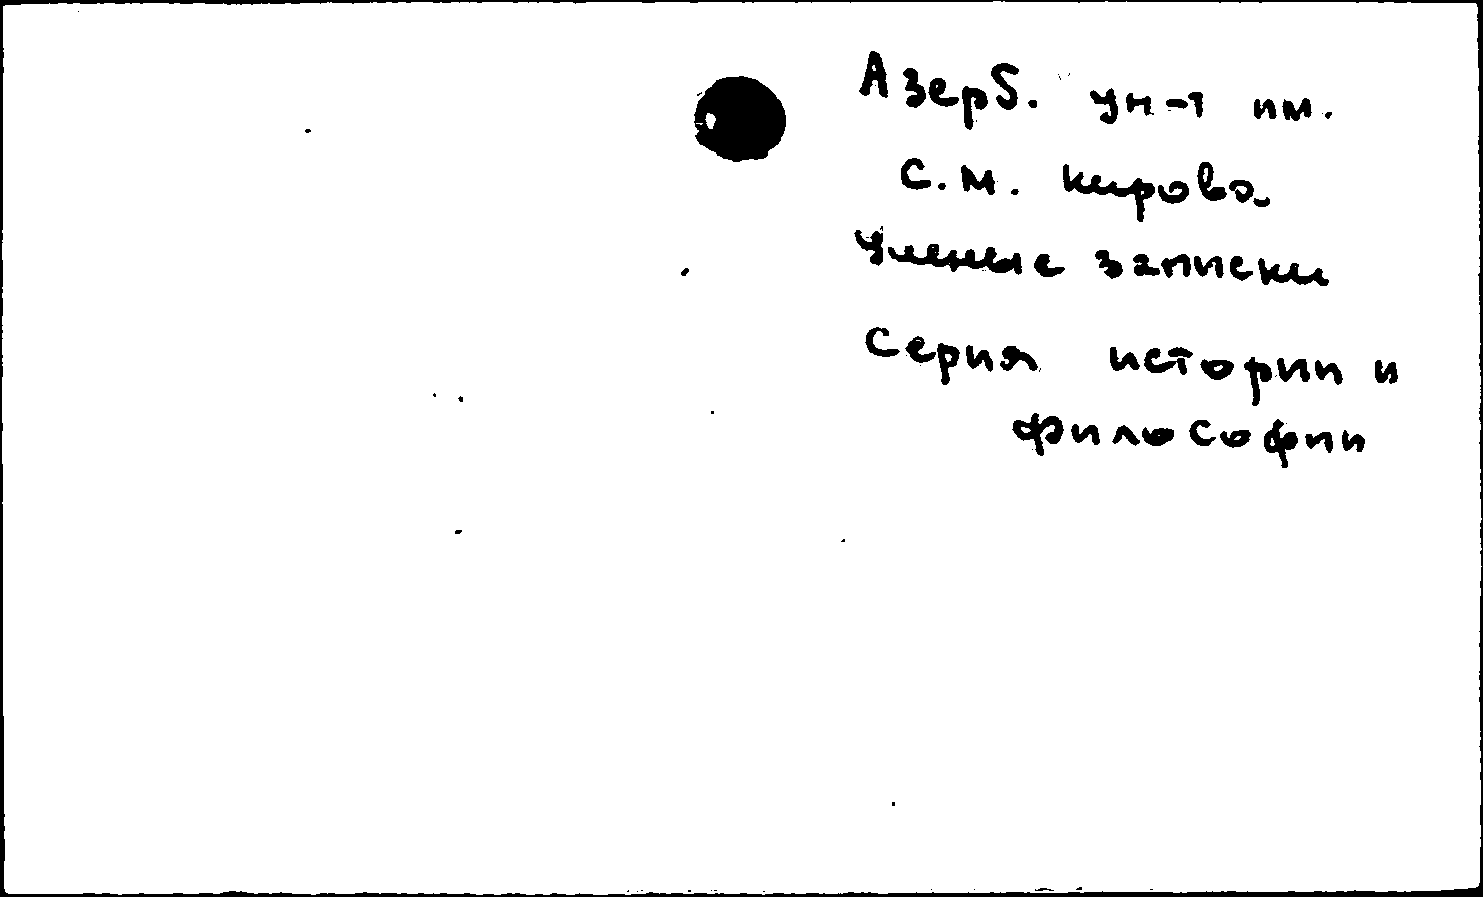 Азерб. ун-т им.
С.М. Кирова
Ученые записки
Серия истории и
философии